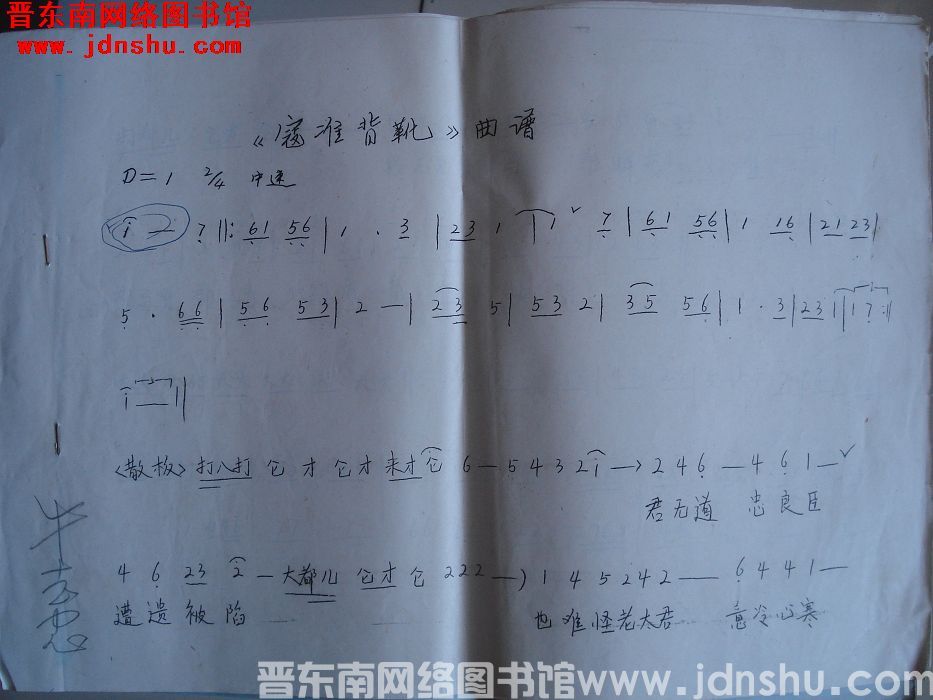 晋东南网络图书馆
www.jdnshu.com
《寇准背靴》曲谱
D=1 2/4 中速
i 2 7 ‖: 61 56 | 1 · 3 | 23 1 | 1 ˇ 7 | 61 56 | 1 16 | 21 23 |
5 · 66 | 56 53 | 2 — | 23 5 | 53 2 | 35 56 | 1 · 3 | 23 1 | 1 7 :‖
i — ‖
〈散板〉 打八打 仓 才 仓 才 来才 仓 6 — 5 4 3 2 i —) 2 4 6 — 4 6 1 — ˇ
君无道 忠良臣
4 6 23 2 — 大都儿 仓才 仓 222 —) 1 4 5 2 4 2 — 6 4 4 1 —
遭遗被陷 也难怪老太君 意冷心寒
晋东南网络图书馆 www.jdnshu.com